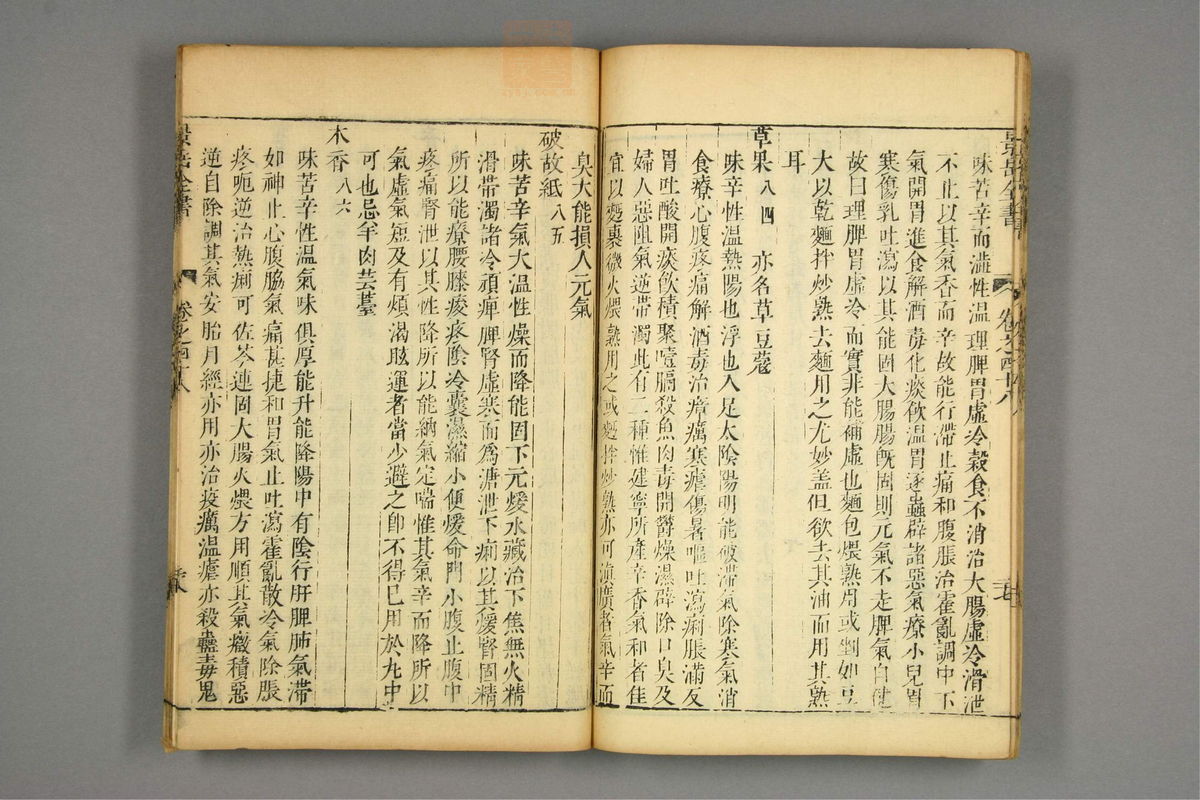 味苦辛而濇性溫理脾胃虛冷穀食不消治大腸虛冷滑泄
不止以其氣香而辛故能行滯止痛和腹脹治霍亂調中下
氣開胃進食解酒毒化痰飲溫胃逐蟲辟諸惡氣療小兒胃
寒傷乳吐瀉以其能固大腸腸旣固則元氣不走脾氣自健
故曰理脾胃虛冷而實非能補虛也麵包煨熟用或剉如豆
大以乾麵拌炒熟去麵用之尤妙盖但欲去其油而用其熟
耳
草果八四　亦名草豆蔻
味辛性溫熱陽也浮也入足太陰陽明能破滯氣除寒氣消
食療心腹疼痛解酒毒治瘴癘寒瘧傷暑嘔吐瀉痢脹滿反
胃吐酸開痰飲積聚噎膈殺魚肉毒開鬱燥濕辟除口臭及
婦人惡阻氣逆帶濁此有二種惟建寧所產辛香氣和者佳
宜以麪裹微火煨熟用之或麪拌炒熟亦可滇廣者氣辛而
臭大能損人元氣
破故紙八五
味苦辛氣大溫性燥而降能固下元煖水藏治下焦無火精
滑帶濁諸冷頑痺脾腎虛寒而爲溏泄下痢以其煖腎固精
所以能療腰膝痠疼陰冷囊濕縮小便煖命門小腹止腹中
疼痛腎泄以其性降所以能納氣定喘惟其氣辛而降所以
氣虛氣短及有煩渴眩運者當少避之卽不得已用於丸中
可也忌羊肉芸薹
木香八六
味苦辛性溫氣味俱厚能升能降陽中有陰行肝脾肺氣滯
如神止心腹脇氣痛甚捷和胃氣止吐瀉霍亂散冷氣除脹
疼呃逆治熱痢可佐芩連固大腸火煨方用順其氣癥積惡
逆自除調其氣安胎月經亦用亦治疫癘溫瘧亦殺蠱毒鬼
景岳全書
卷之四十八